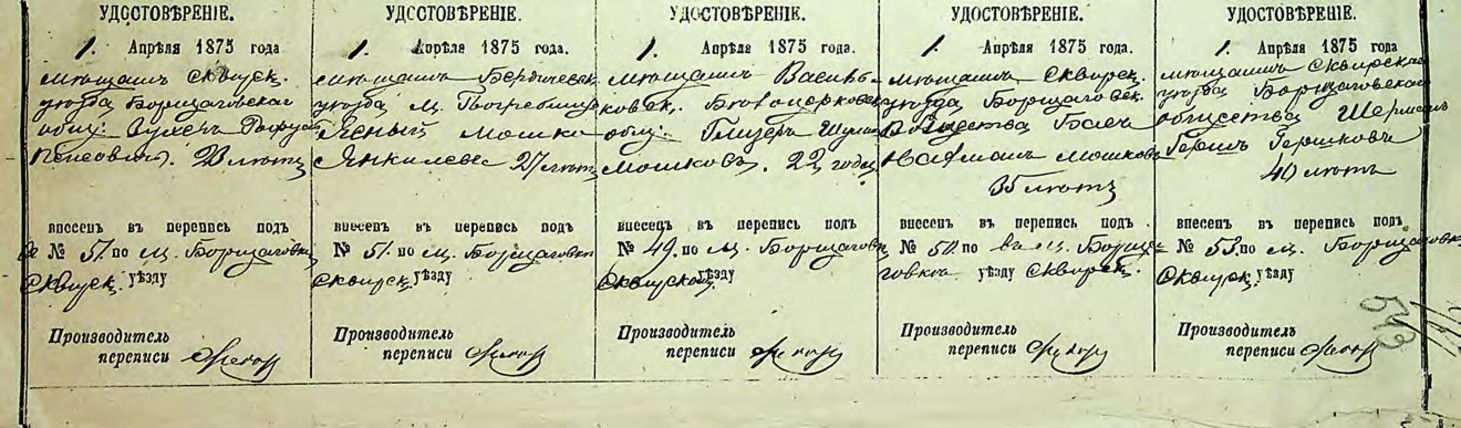 УДОСТОВѢРЕНІЕ.
1. Апрѣля 1875 года
мѣщанъ Сквирск.
уѣзда Борщаговскаго
общ:
23 лѣтъ
внесенъ въ перепись подъ
№ 51. по м. Борщаговки
Сквирск. уѣзду
Производитель
переписи
УДОСТОВѢРЕНІЕ.
1. Апрѣля 1875 года.
мѣщанинъ Бердичевск.
уѣзда м. Погребищъ
Ясный Мошко
Янкилевъ 27 лѣтъ
внесенъ въ перепись подъ
№ 51. по м. Борщаговки
Сквирск. уѣзду
Производитель
переписи
УДОСТОВѢРЕНІЕ.
1. Апрѣля 1875 года.
мѣщанинъ Василь-
ковск. Бѣлоцерковск.
общ: Глизеръ
Мошковъ. 22 года
внесенъ въ перепись подъ
№ 49. по м. Борщаговки
Сквирском. уѣзду
Производитель
переписи
УДОСТОВѢРЕНІЕ.
1. Апрѣля 1875 года.
мѣщанинъ Сквирск.
уѣзда Борщаговск.
Общества
Нафтманъ Мошковъ
35 лѣтъ
внесенъ въ перепись подъ
№ 50. по м. Борща-
говкѣ уѣзду Сквирск.
Производитель
переписи
УДОСТОВѢРЕНІЕ.
1. Апрѣля 1875 года
мѣщанинъ Сквирскаго
уѣзда Борщаговскаго
общества Шерманъ
Гершъ Гершковъ
40 лѣтъ
внесенъ въ перепись подъ
№ 53. по м. Борщаговки
Сквирск. уѣзду
Производитель
переписи